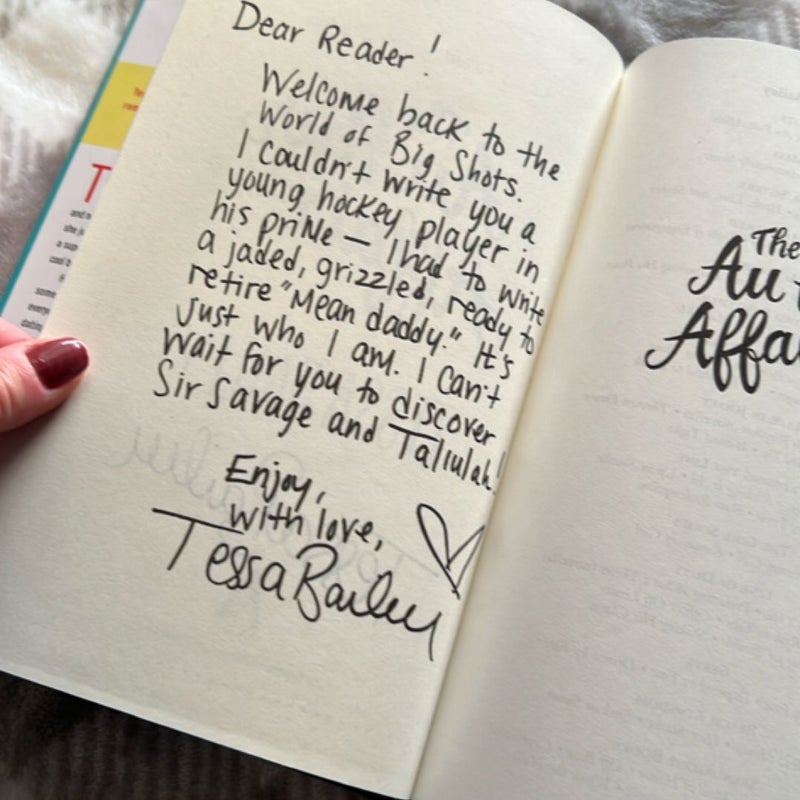 Dear Reader!
Welcome back to the
World of Big Shots.
I couldn't write you a
young hockey player in
his prime — I had to write
a jaded, grizzled, ready to
retire "Mean daddy." It's
just who I am. I can't
wait for you to discover
Sir Savage and Tallulah!
Enjoy,
with love,
Tessa Bailey
The
Au
Affa
T